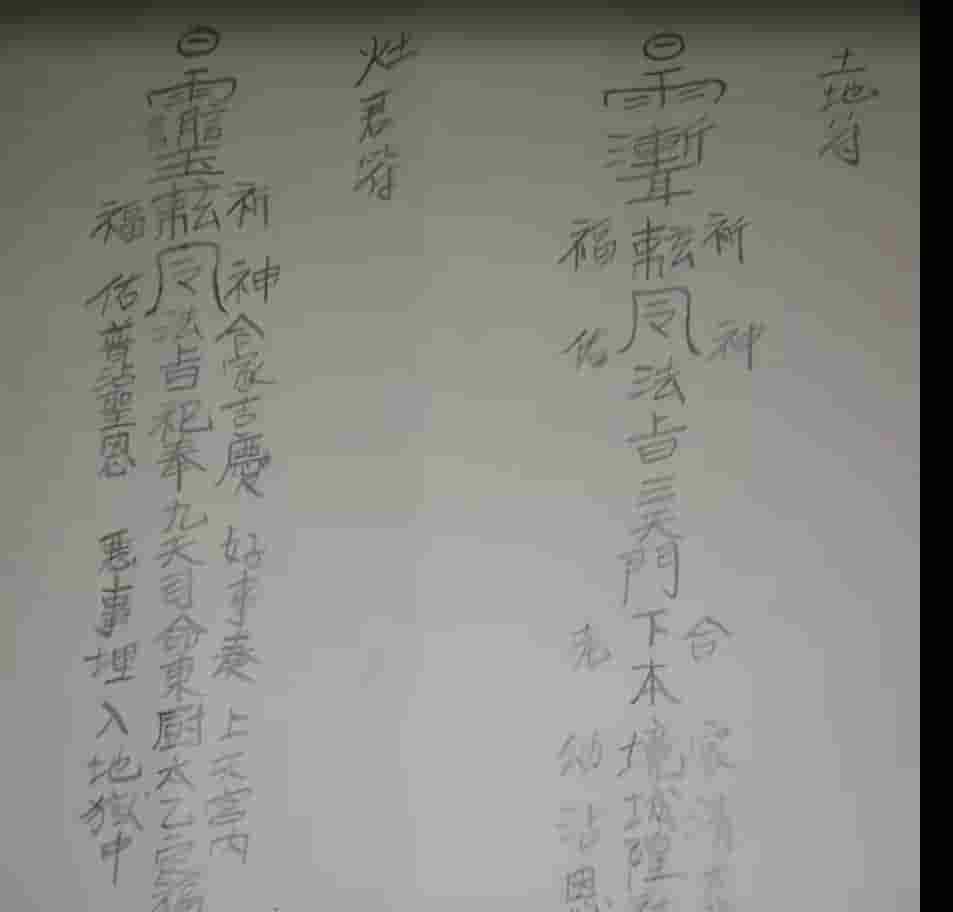 土地符
祈神合家清
令法旨三天門下本境城隍
福佑老幼沾恩
灶君符
祈神合家吉慶 好事奏上天宮內
令法旨祀奉九天司命東厨太乙定福
福佑普沾聖恩 惡事埋入地獄中